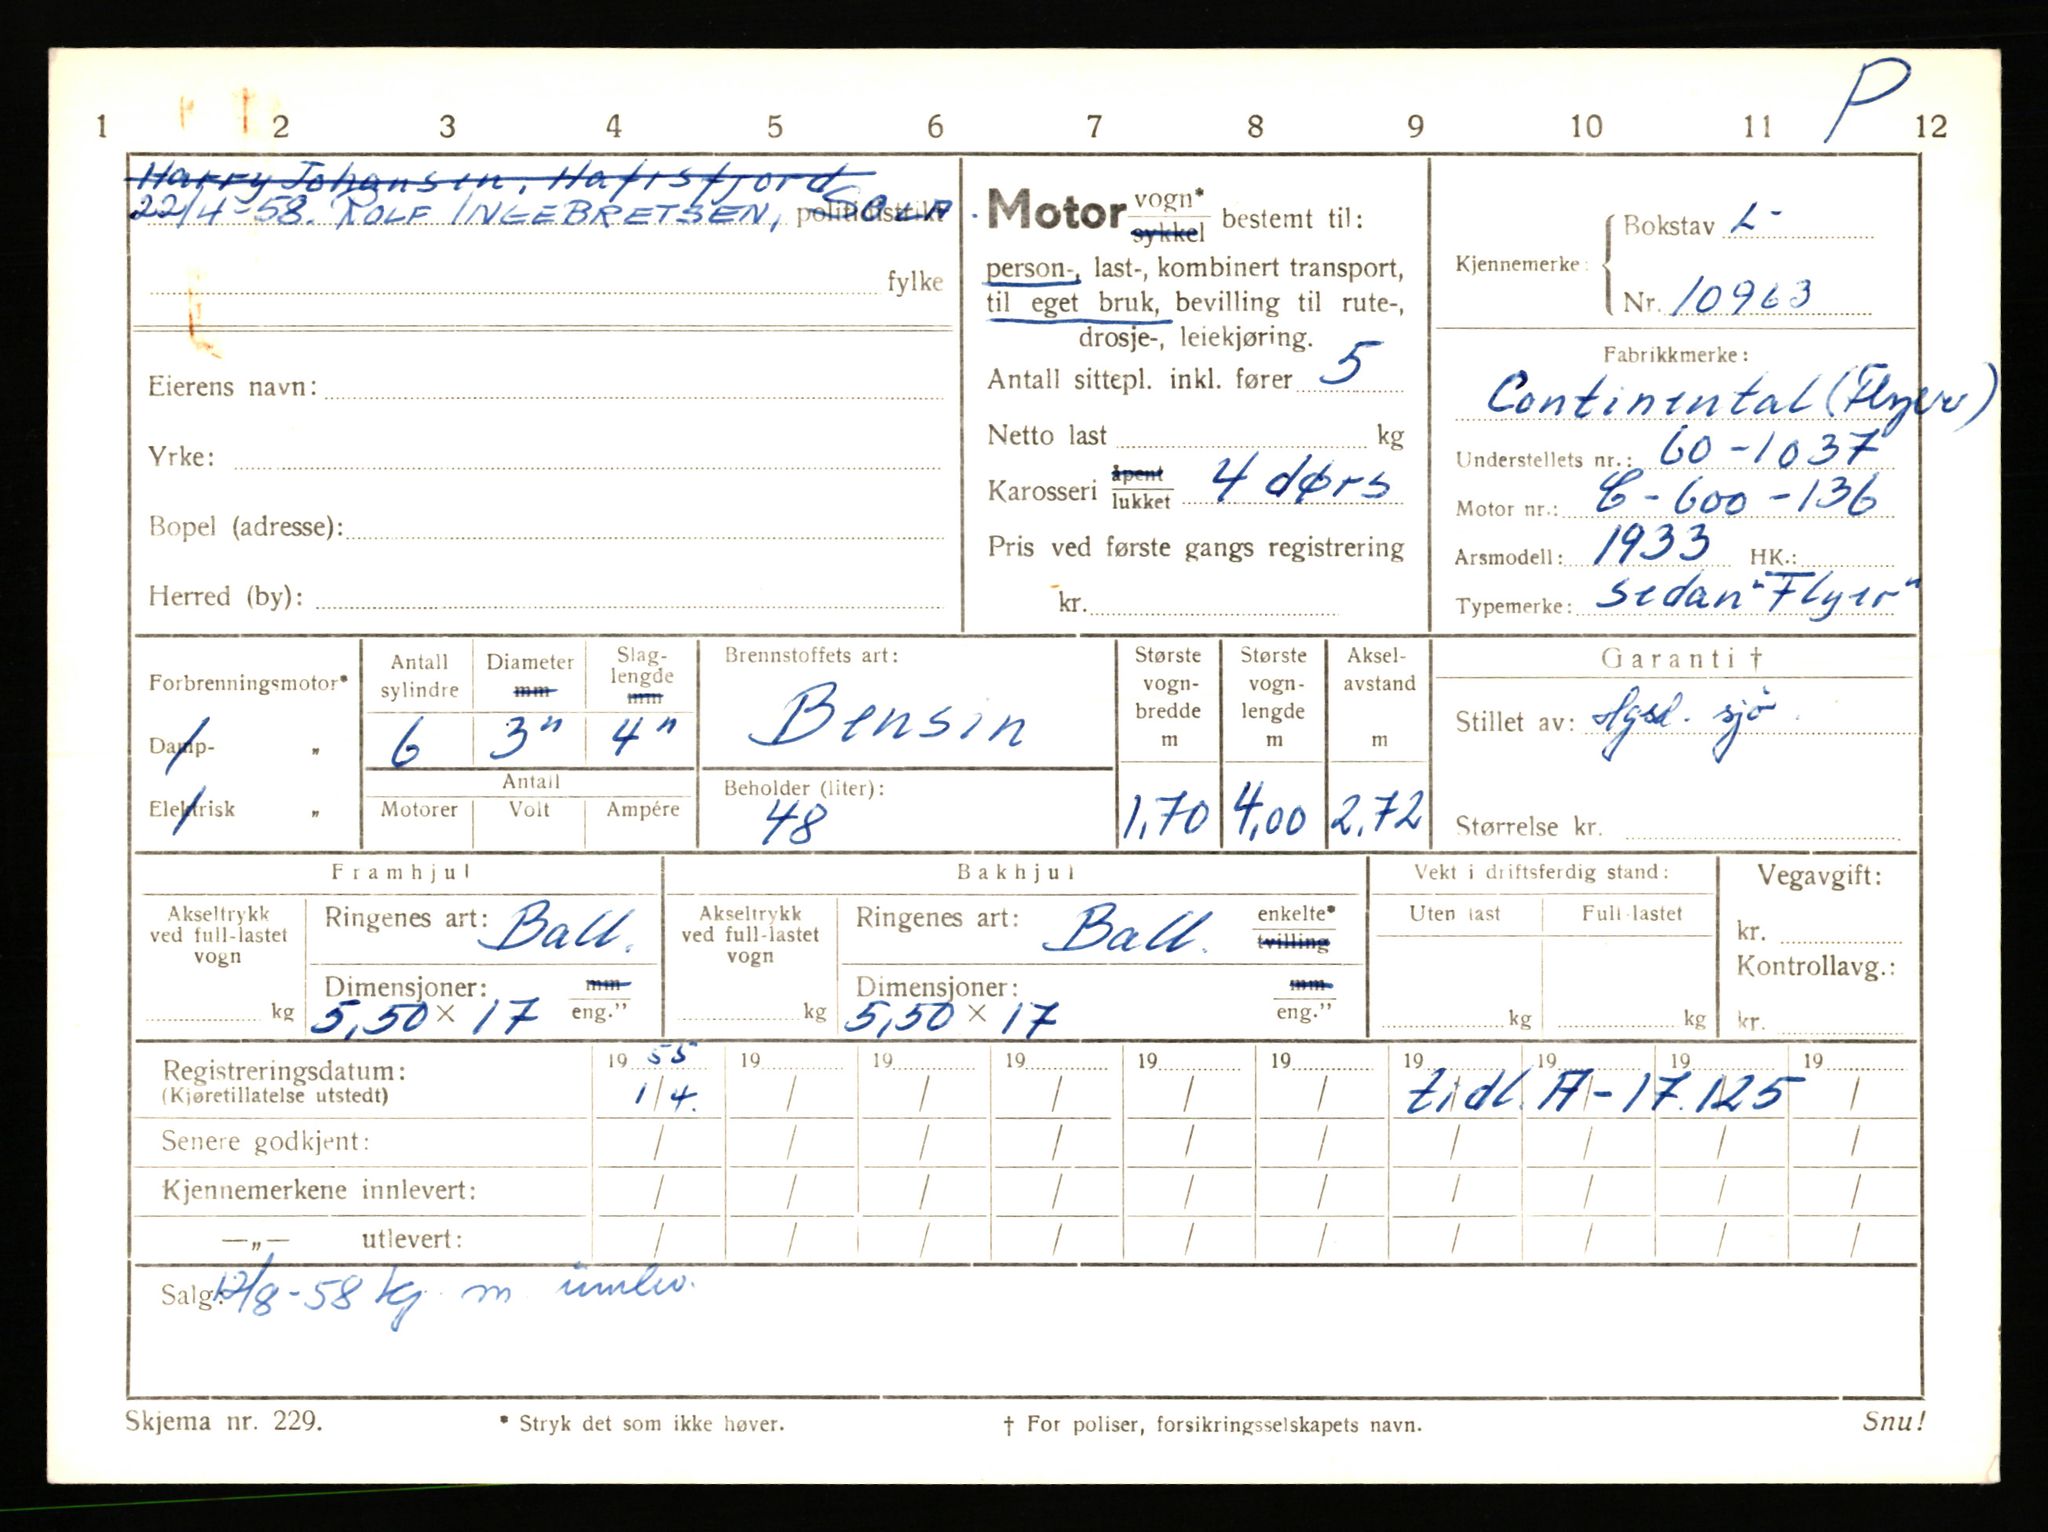 P
1 2 3 4 5 6 7 8 9 10 11 12
Harry Johansen, Hafrsfjord
22/4-58. ROLF INGEBRETSEN, politidistrikt
fylke
Eierens navn:
Yrke:
Bopel (adresse):
Herred (by):
Motor vogn* sykkel bestemt til:
person-, last-, kombinert transport,
til eget bruk, bevilling til rute-,
drosje-, leiekjøring.
Antall sittepl. inkl. fører 5
Netto last kg
Karosseri åpent lukket 4 dørs
Pris ved første gangs registrering
kr.
Kjennemerke: Bokstav L-
Nr. 10963
Fabrikkmerke:
Continental (Flyer)
Understellets nr.: 60-1037
Motor nr.: C-600-136
Årsmodell: 1933 HK.:
Typemerke: Sedan "Flyer"
Forbrenningsmotor*
Damp- „
Elektrisk „
Antall sylindre
6
Diameter mm
3"
Slaglengde mm
4"
Antall
Motorer Volt Ampére
Brennstoffets art:
Bensin
Beholder (liter):
48
Største vogn-bredde m
1,70
Største vogn-lengde m
4,00
Aksel-avstand m
2,72
Garanti †
Stillet av: sjø
Størrelse kr.
Framhjul
Akseltrykk ved full-lastet vogn
kg
Ringenes art: Ball.
Dimensjoner: mm
5,50 x 17 eng."
Bakhjul
Akseltrykk ved full-lastet vogn
kg
Ringenes art: Ball. enkelte* tvilling
Dimensjoner: mm
5,50 x 17 eng."
Vekt i driftsferdig stand:
Uten last Full-lastet
kg kg
Vegavgift:
kr.
Kontrollavg.:
kr.
19 55 19 19 19 19 19 19 19 19 19
Registreringsdatum:
(Kjøretillatelse utstedt) 1/4. / / / / / tidl. A-17.125 /
Senere godkjent: / / / / / / / / / /
Kjennemerkene innlevert: / / / / / / / / / /
—„— utlevert: / / / / / / / / / /
Salg: 12/8-58 kj. m. innlev.
Skjema nr. 229. * Stryk det som ikke høver. † For poliser, forsikringsselskapets navn. Snu!